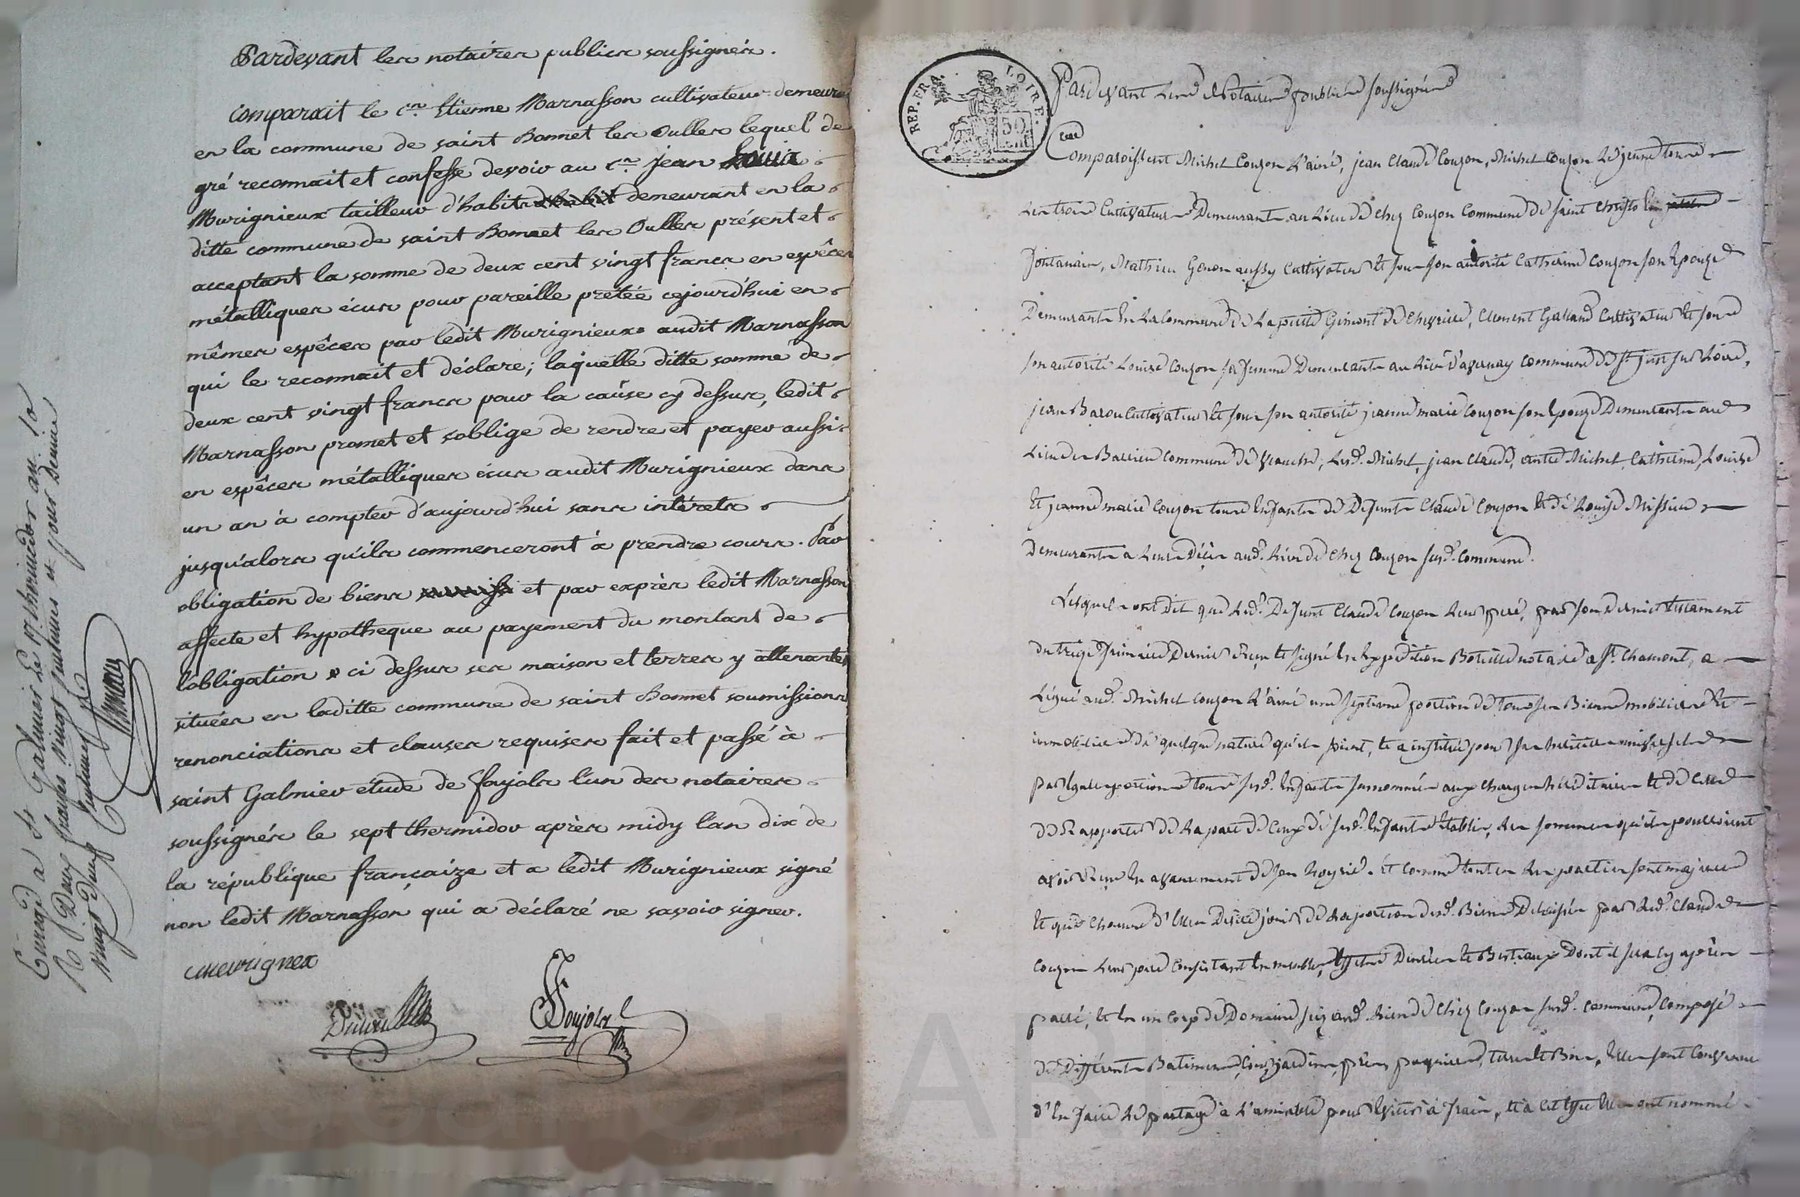 Pardevant les notaires publics soussignés.
comparait le c.en Etienne Marnasson cultivateur demeurant
en la commune de saint Bonnet les Oulles lequel de
gré reconnait et confesse devoir au c.en jean
Murignieux tailleur d'habits demeurant en la
ditte commune de saint Bonnet les Oulles présent et
acceptant la somme de deux cent vingt francs en espêces
métalliques écus pour pareille prêtée cejourd'hui en
mêmes espêces par ledit Murignieux audit Marnasson
qui le reconnait et déclare; laquelle ditte somme de
deux cent vingt francs pour la cause cy dessus, ledit
Marnasson promet et s'oblige de rendre et payer aussi
en espêces métalliques écus audit Murignieux dans
un an à compter d'aujourd'hui sans intérets
jusqu'alors qu'ils commenceront à prendre cours. Par
obligation de biens et par exprès ledit Marnasson
affecte et hypotheque au payement du montant de
l'obligation ci dessus ses maison et terres y attenantes
situées en laditte commune de saint Bonnet soumissions
renonciations et clauses requises fait et passé à
saint Galmier etude de Foujols l'un des notaires
soussignés le sept thermidor après midy l'an dix de
la république française et a ledit Murignieux signé
non ledit Marnasson qui a déclaré ne savoir signer.
Foujols
Enrégé à St Galmier le 17 thermidor an. 10
R. Deux francs vingt centimes et pour
vingt Deux Centimes
REP. FRA. LOIRE.
50
Pardevant Les Notaires publics soussignés
Comparoissent Michel Couzon L'ainé, jean Claude Couzon, Michel Couzon Le jeune tous
Les trois Cultivateurs Demeurants au Lieu de Chez Couzon Commune de saint Christo
Fontanais, Mathieu aussy Cultivateur et sous son autorité Catherine Couzon son Epouse
Demeurants En La Commune de Clement Galland Cultivateur et sous
son autorité Louise Couzon sa femme Demeurants au Lieu d'avenay Commune de St just sur Loire,
jean Barou Cultivateur et sous son autorité jeanne marie Couzon son Epouse Demeurants au
Lieu de Commune de Lesd. Michel, jean Claude, autre Michel, Catherine, Louise
Et jeanne marie Couzon tous Enfants de Defunts Claude Couzon et de Louise
demeurants a Leurs Décès aud. Lieu de Chez Couzon susd. Commune.
Lesquels ont dit que Led. Defunt Claude Couzon Leur pere, par son Dernier testament
du treize Dernier Reçu et signé En Expedition notaire a St. Chamont, a
Légué aud. Michel Couzon L'ainé une septieme portion de tous ses Biens mobiliers Et
immobiliers de quelque nature qu'ils soient, Et a institué pour ses heritiers universels
par Egales portions tous sesd. Enfants surnommés aux charges hereditaires Et de Celle
de Rapporter de La part de Ceux de sesd. Enfants Etablis, Les sommes qu'ils pouvoient
avoir Reçu En avancement de son Hoyrie. Et Comme toutes Les parties sont majeures
Et que Chacune d'Elles Desire jouir de sa portion desd. Biens Delaissés par Led. Claude
Couzon Leur pere Consistant En meubles, Effets Denrées Et Bestiaux Dont il sera cy après
parlé, Et En un Corps de Domaine sis aud. Lieu de Chez Couzon susd. Commune, Composé
de Différents Batiments, Cour, jardins, prés, paquiers, terres Et Bois, Elles sont Convenues
d'En faire Le partage à L'amiable pour Eviter à frais, Et à Cet Effet Elles ont nommé